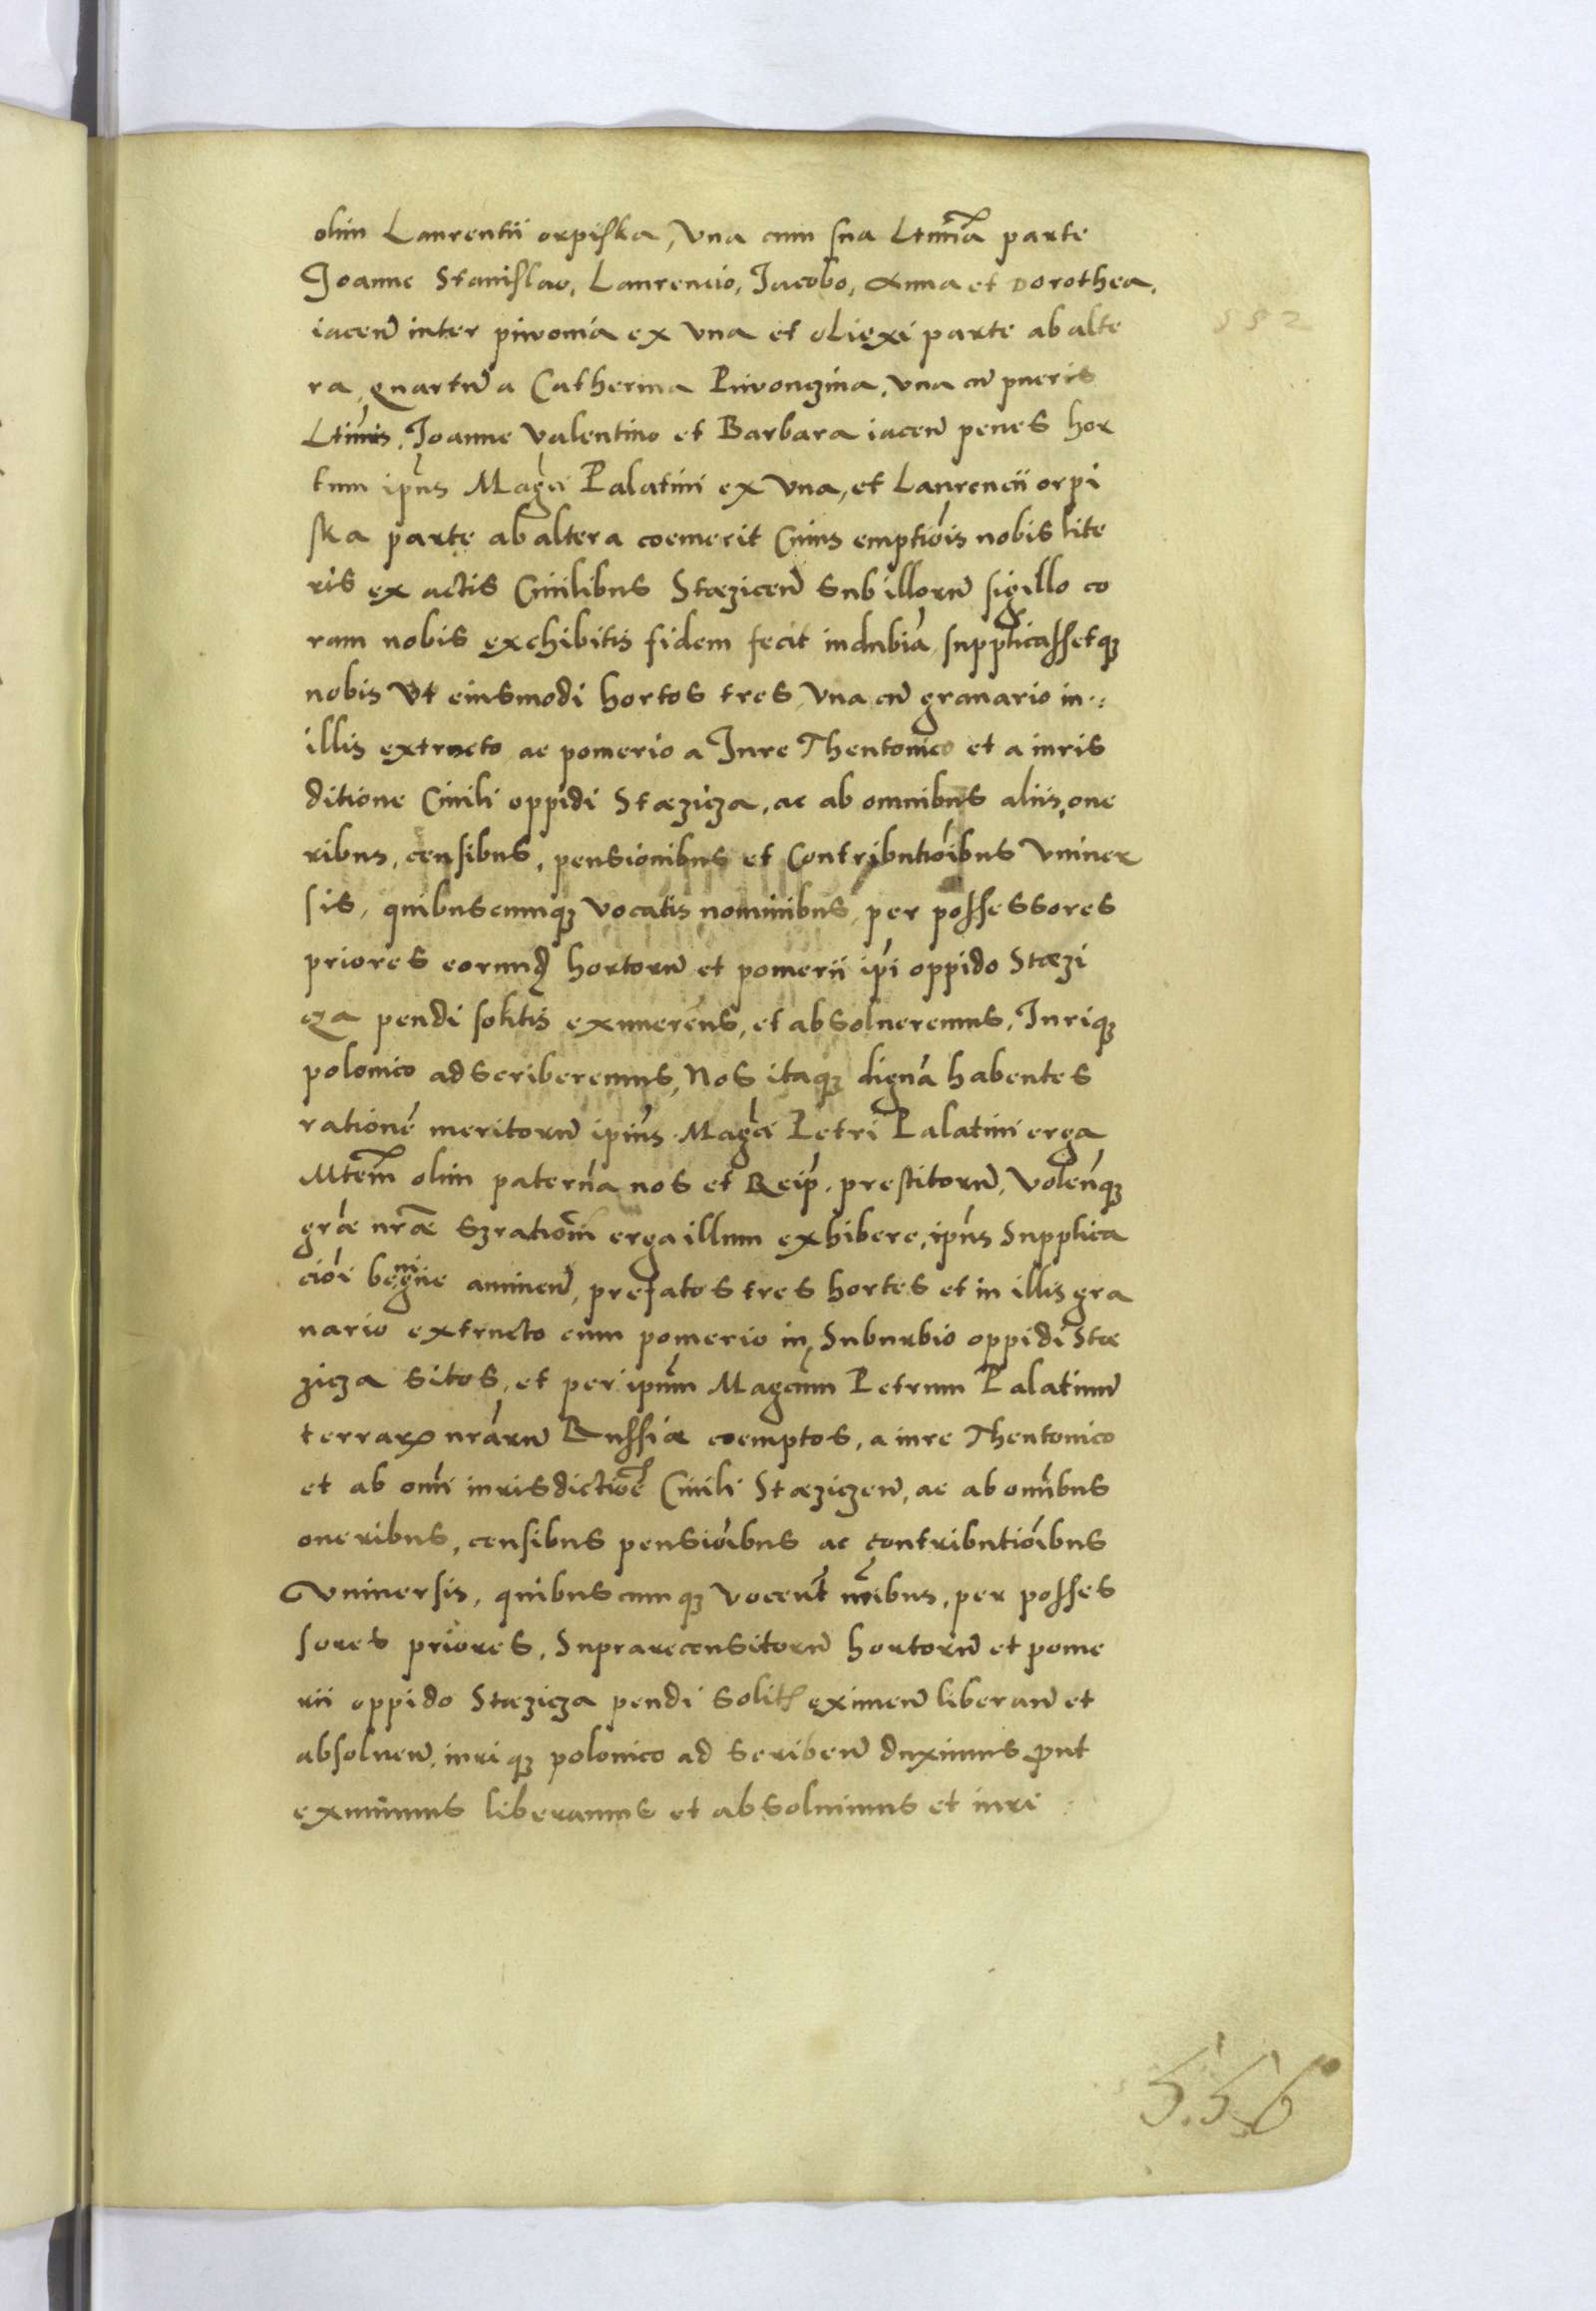 olim Laurentii orpiska, Vna cum sua Ltimã parte
Joanne Stanislao, Laurencio, Jacobo, Anna et Dorothea,
iaceñ inter piwoniã ex Vna et oliexi parte ab alte
552
ra, quartũ a Catherina Piwonczina, Vna cũ pueris
Ltimis, Joanne Valentino et Barbara iaceñ penes hor
tum ipius Magci Palatini ex Vna, et Laurencii orpi
ska parte ab altera coemerit Cuius emptiõis nobis lite
ris ex actis Ciuilibus Stæziceñ sub illorũ sigillo co
ram nobis exchibitis fidem fecit indubiã, supplicassetq₃
nobis Vt eiusmodi hortos tres Vna cũ granario in
illis extructo ac pomerio a Jure Theutonico et a iuris
ditione Ciuili oppidi Stæzicza, ac ab omnibus aliis, one
ribus, censibus, pensionibus et Contributiõibus Vniuer
sis, quibuscunq₃ Vocatis nominibus, per possessores
priores eorund hortorũ et pomerii ipi oppido Stæzi
cza pendi solitis eximerẽus, et absolueremus, Juriq₃
polonico adscriberemus, Nos itaq₃ dignã habentes
rationẽ meritorũ ipius Magci Petri Palatini erga
Mtem olim paternã nos et Reip. prestitorũ, Volenq₃
grãe nrãe Szrationẽ erga illum exhibere, ipius Supplica
ciõi benigne anнueñ, prefatos tres hortos et in illis gra
nario extructo cum pomerio in Suburbio oppidi Stæ
zicza sitos, et per ipum Magcum Petrum Palatinũ
terrarꝝ nrãrũ Russiæ coemptos, a iure Theutonico
et ab omi iurisdictiõe Ciuili Stæziczeñ, ac ab omibus
oneribus, censibus pensiõibus ac contributiõibus
Vniuersis, quibuscunq₃ Vocent nõibus, per posses
sores priores, Suprarecensitorũ hortorũ et pome
rii oppido Stæzicza pendi solit eximeñ liberañ et
absolueñ, iuriq₃ polonico ad scribeñ duximus put
eximimus liberamus et absoluimus et iuri
556